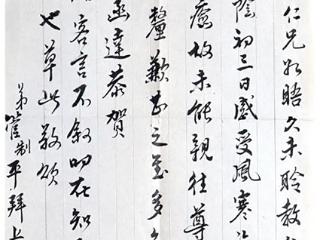 仁兄夕晤久未聆教
陰初三日感受風寒
癒故未能親往尊
釐歉甚之至多
函達恭賀
客言不敘叩在知
也草此敬頌
弟管制平拜上